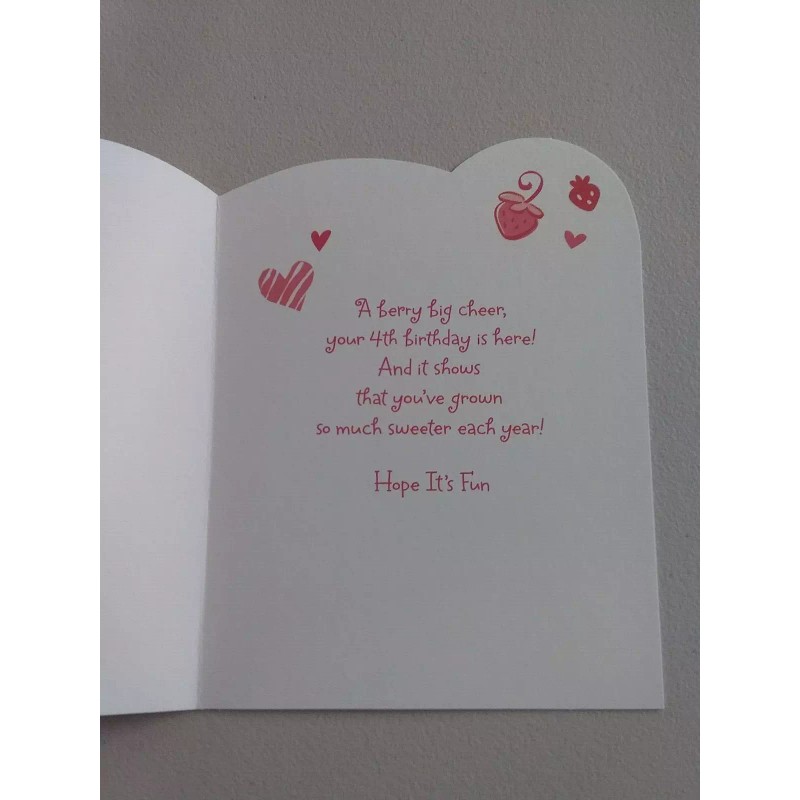 A berry big cheer,
your 4th birthday is here!
And it shows
that you've grown
so much sweeter each year!
Hope It's Fun